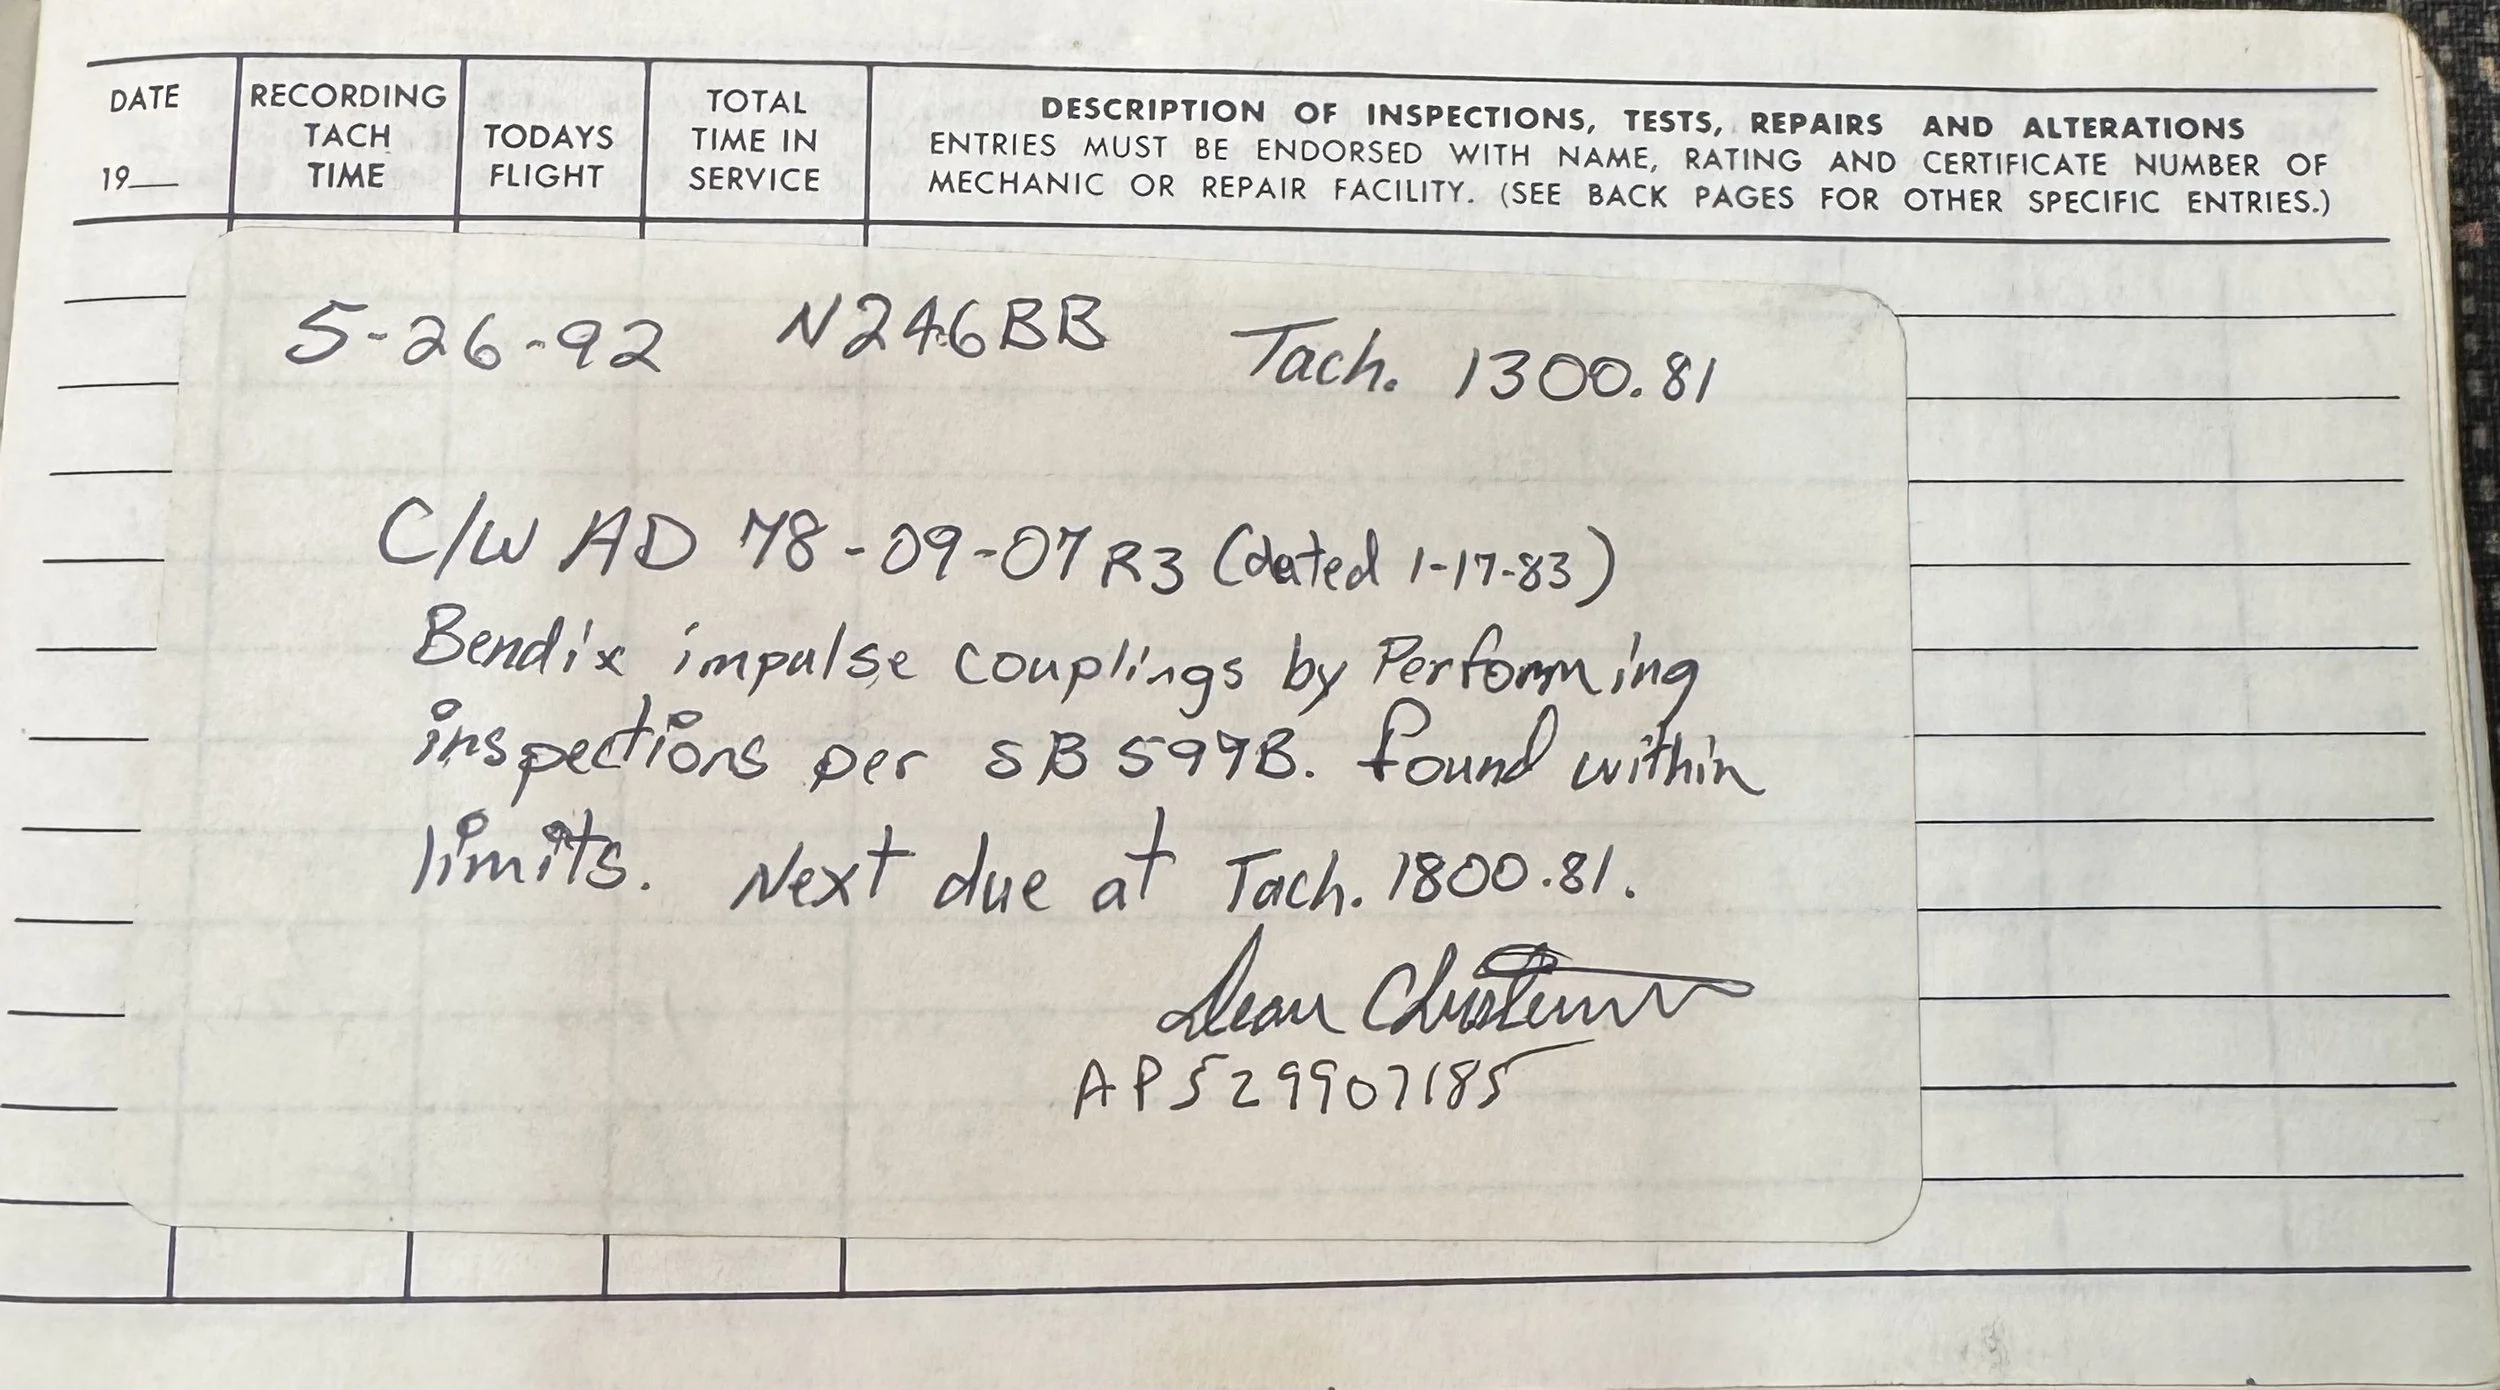 DATE RECORDING TACH TIME TODAYS FLIGHT TOTAL TIME IN SERVICE DESCRIPTION OF INSPECTIONS, TESTS, REPAIRS AND ALTERATIONS
19__ ENTRIES MUST BE ENDORSED WITH NAME, RATING AND CERTIFICATE NUMBER OF
MECHANIC OR REPAIR FACILITY. (SEE BACK PAGES FOR OTHER SPECIFIC ENTRIES.)
5-26-92 N246BB Tach. 1300.81
C/W AD 78-09-07R3 (dated 1-17-83)
Bendix impulse couplings by Performing
inspections per SB 599B. found within
limits. Next due at Tach. 1800.81.
Dean
AP529907185